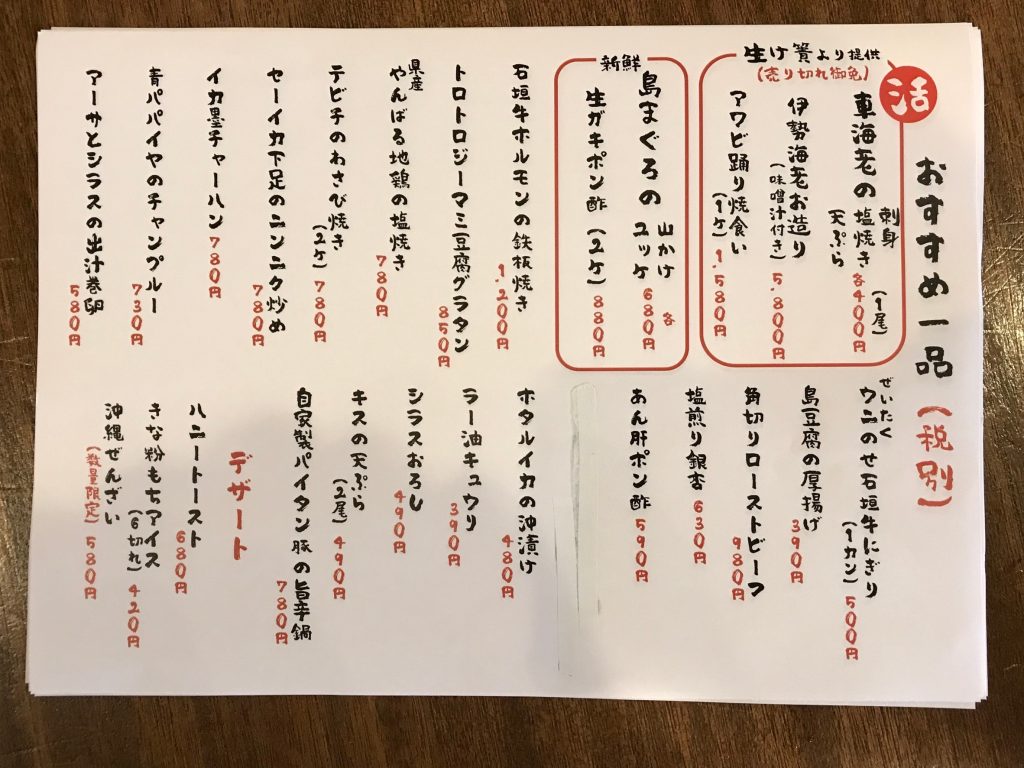 おすすめ一品(税別)
活
生け簀より提供
(売り切れ御免)
車海老の 刺身 塩焼き 天ぷら (1尾) 各400円
伊勢海老お造り (味噌汁付き) 5.800円
アワビ踊り焼食い (1ケ) 1.580円
新鮮
島まぐろの 山かけ ユッケ 各680円
生ガキポン酢 (2ケ) 880円
石垣牛ホルモンの鉄板焼き 1.200円
トロトロジーマミ豆腐グラタン 850円
県産 やんばる地鶏の塩焼き 780円
テビチのわさび焼き (2ケ) 780円
セーイカ下足のニンニク炒め 780円
イカ墨チャーハン 780円
青パパイヤのチャンプルー 730円
アーサとシラスの出汁巻卵 580円
ぜいたく ウニのせ石垣牛にぎり (1カン) 500円
島豆腐の厚揚げ 390円
角切りローストビーフ 980円
塩煎り銀杏 630円
あん肝ポン酢 590円
ホタルイカの沖漬け 480円
ラー油キュウリ 390円
シラスおろし 490円
キスの天ぷら (2尾) 490円
自家製パイタン豚の旨辛鍋 780円
デザート
ハニートースト 680円
きな粉もちアイス (6切れ) 420円
沖縄ぜんざい (数量限定) 580円